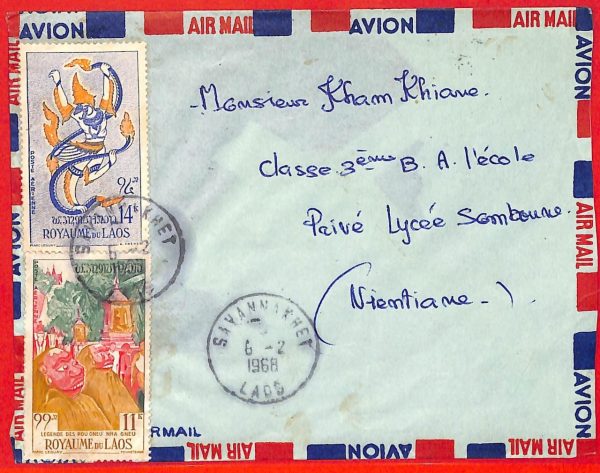 AVION AIR MAIL AVION AIR MAIL AVION
POSTE AERIENNE
14K
ROYAUME DU LAOS
SAVANNAKHET
6-2
LEGENDE DES POU GNEU NHA GNEU
11K
ROYAUME DU LAOS
Monsieur Kham Khiane.
Classe 3ème B. A. l'école
Privé Lycée Somboune.
(Vientiane-)
SAVANNAKHET
6-2
1968
LAOS
AIR MAIL
AVION
AIR MAIL
AVION
AIR MAIL
AVION
AIRMAIL
AVION AIR MAIL AVION AIR MAIL